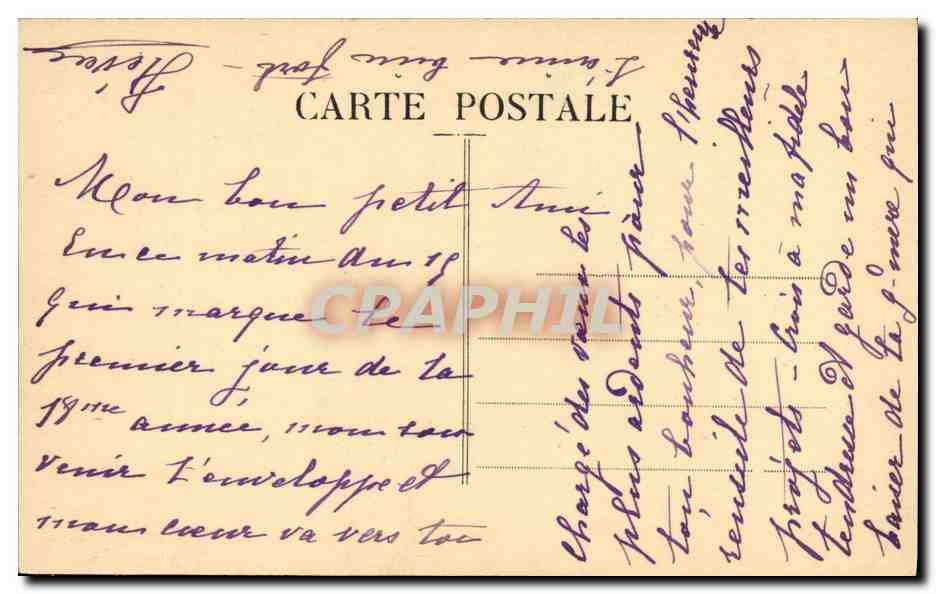 CARTE POSTALE
Mon bon petit Ami
En ce matin du 15
qui marque le
premier jour de ta
18me année, mon sou
venir t'enveloppe et
mon cœur va vers toi
chargé des vœux les
plus ardents pour
ton bonheur, pour l'heureuse
réussite de tes meilleurs
projets - Crois à ma fidèle
tendresse et garde un bon
baiser de ta g-mère qui
t'aime bien fort -
CPAPHIL